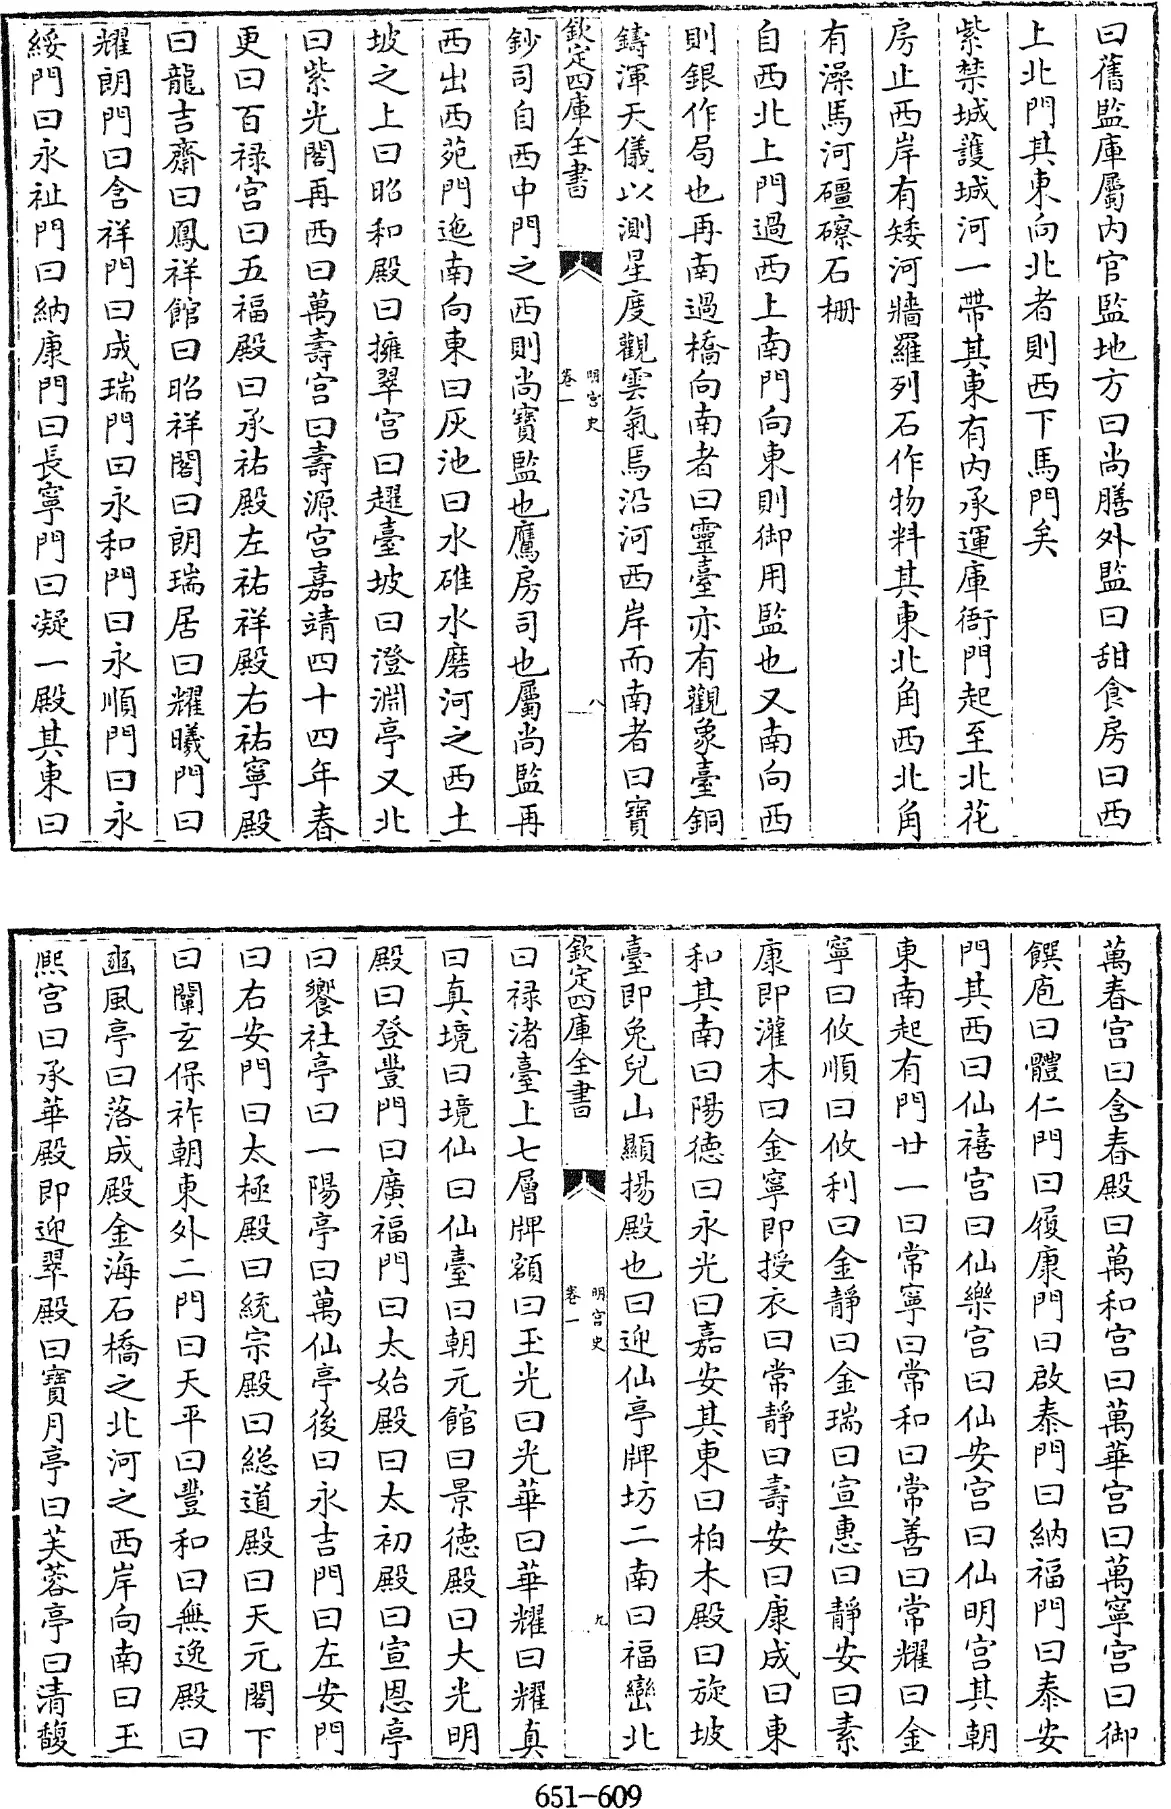 曰舊監庫屬内官監地方曰尚膳外監曰甜食房曰西
上北門其東向北者則西下馬門矣
紫禁城護城河一帶其東有内承運庫衙門起至北花
房止西岸有矮河牆羅列石作物料其東北角西北角
有澡馬河礓磜石栅
自西北上門過西上南門向東則御用監也又南向西
則銀作局也再南過橋向南者曰靈臺亦有觀象臺銅
鑄渾天儀以測星度觀雲氣焉沿河西岸而南者曰寶
欽定四庫全書
明宫史
卷一
八
鈔司自西中門之西則尚寶監也鷹房司也屬尚監再
西出西苑門迤南向東曰灰池曰水碓水磨河之西土
坡之上曰昭和殿曰擁翠宫曰趯臺坡曰澄淵亭又北
曰紫光閣再西曰萬壽宫曰壽源宫嘉靖四十四年春
更曰百禄宫曰五福殿曰承祐殿左祐祥殿右祐寧殿
曰龍吉齋曰鳳祥館曰昭祥閣曰朗瑞居曰耀曦門曰
耀朗門曰含祥門曰成瑞門曰永和門曰永順門曰永
綏門曰永祉門曰納康門曰長寧門曰凝一殿其東曰
萬春宫曰含春殿曰萬和宫曰萬華宫曰萬寧宫曰御
饌庖曰體仁門曰履康門曰啟泰門曰納福門曰泰安
門其西曰仙禧宫曰仙樂宫曰仙安宫曰仙明宫其朝
東南起有門廿一曰常寧曰常和曰常善曰常耀曰金
寧曰攸順曰攸利曰金靜曰金瑞曰宣惠曰靜安曰素
康即灌木曰金寧即授衣曰常靜曰壽安曰康成曰東
和其南曰陽德曰永光曰嘉安其東曰柏木殿曰旋坡
臺即兔兒山顯揚殿也曰迎仙亭牌坊二南曰福巒北
欽定四庫全書
明宫史
卷一
九
曰禄渚臺上七層牌額曰玉光曰光華曰華耀曰耀真
曰真境曰境仙曰仙臺曰朝元館曰景德殿曰大光明
殿曰登豐門曰廣福門曰太始殿曰太初殿曰宣恩亭
曰饗社亭曰一陽亭曰萬仙亭後曰永吉門曰左安門
曰右安門曰太極殿曰統宗殿曰総道殿曰天元閣下
曰闡玄保祚朝東外二門曰天平曰豐和曰無逸殿曰
豳風亭曰落成殿金海石橋之北河之西岸向南曰玉
熙宫曰承華殿即迎翠殿曰寶月亭曰芙蓉亭曰清馥
651-609